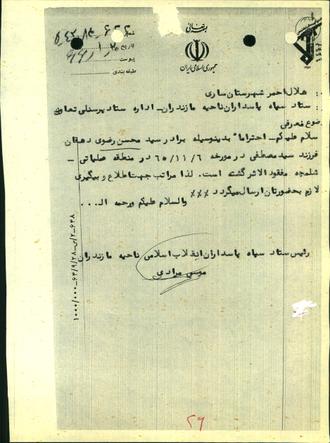 بسمه تعالی
جمهوری اسلامی ایران
شماره
تاریخ
پیوست
طبقه بندی
هلال احمر شهرستان ساری
ستاد سپاه پاسداران ناحیه مازندران _ اداره ستاد پرسنلی تعاون
معرفی
سلام علیکم _ احتراما" بدینوسیله برادر سید محسن رضوی دهقان
فرزند سید مصطفی در مورخه ۶۵/۱۱/۶ در منطقه عملیاتی _
شلمچه مفقود الاثر گشته است. لذا مراتب جهت اطلاع و پیگیری
لازم بحضورتان ارسال میگردد ×××
والسلام علیکم ورحمه الــ ...
رئیس ستاد سپاه پاسداران انقلاب اسلامی ناحیه مازندران
موسی مرادی
۲۹